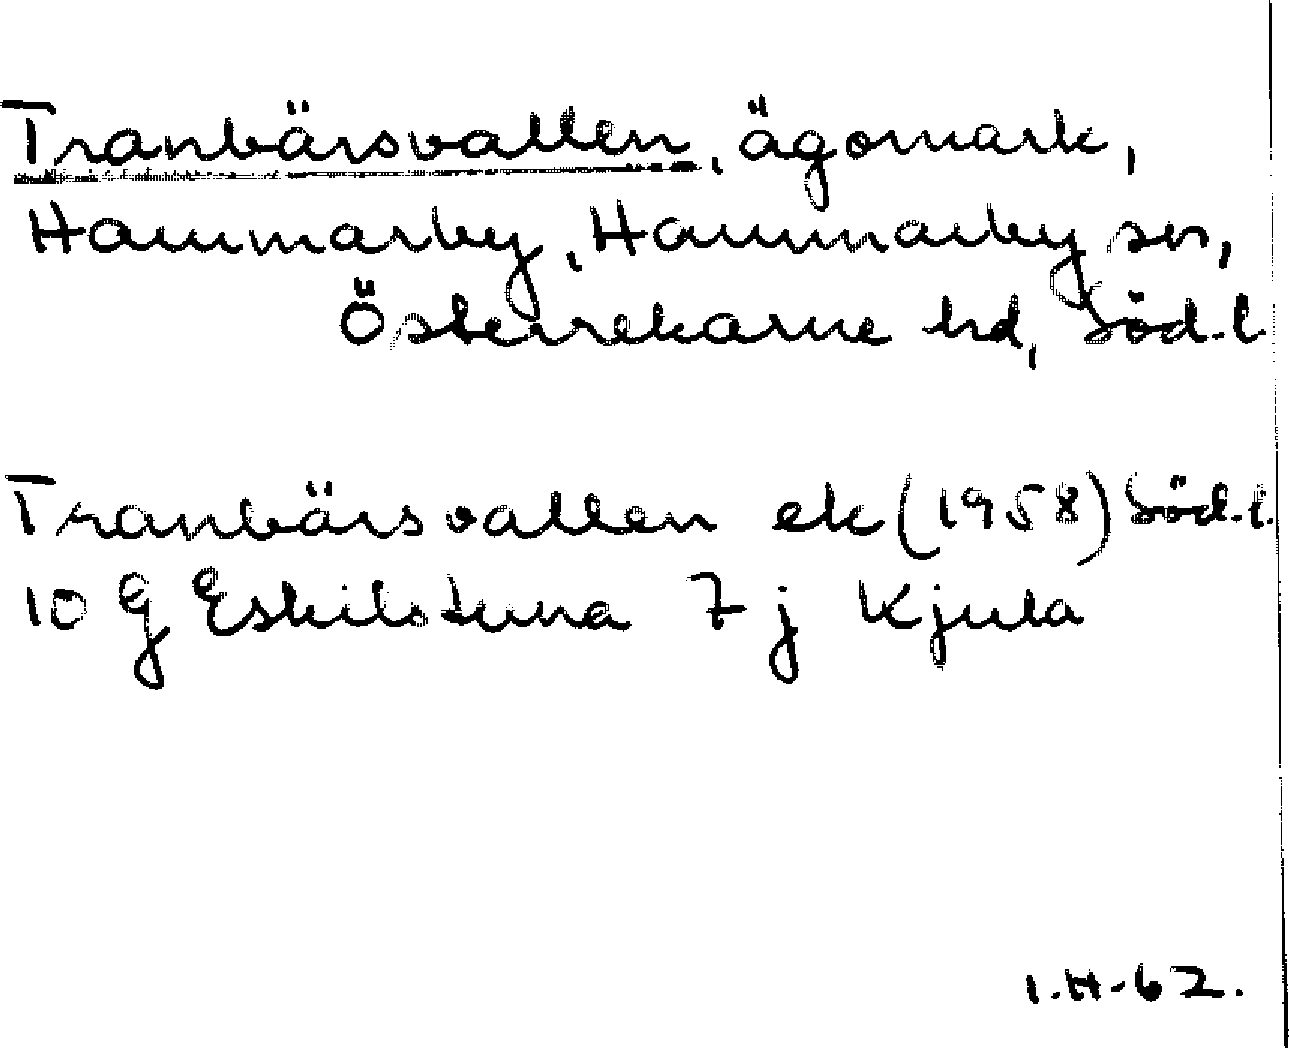 Tranbärsvallen, ägomark,
Hammarby, Hammarby sn,
Österrekarne hd, Söd.l.
Tranbärsvallen ek (1958) Söd.l.
10 G Eskilstuna 7 j Kjula
I.H-62.